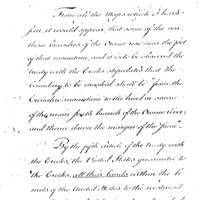 From all the Maps which I have
seen, it would appear, that some of the nor-
thern branches of the Oconee rise near the foot
of that mountain, and it is to be observed the
treaty with the Creeks stipulated that the
boundary to be marked shall be "from the
Currahee mountain to the head or source
of the main south branch of the Oconee river
and thence down the margin of the same".
By the fifth article of the treaty with
the Creeks, the United States guarantee to
the Creeks, all their lands within the li-
mits of the United States to the westward